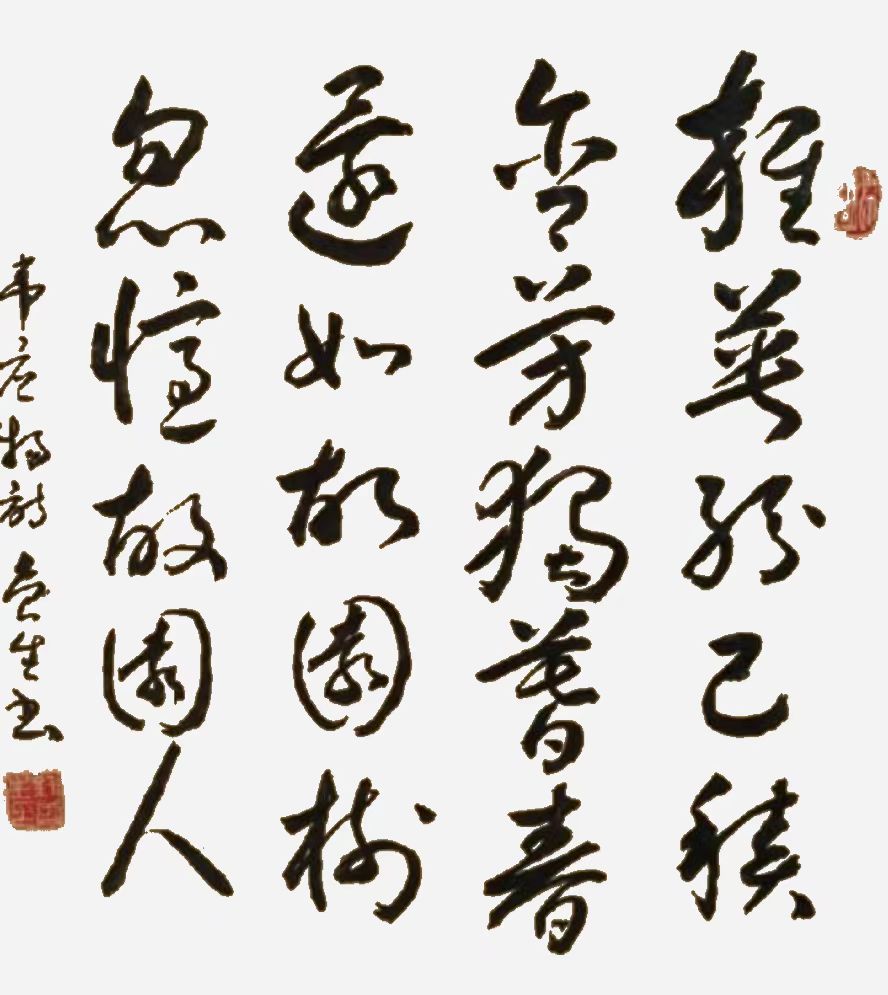 雜英紛已積
含芳獨暮春
還如故園樹
忽憶故園人
韋應物詩 生書